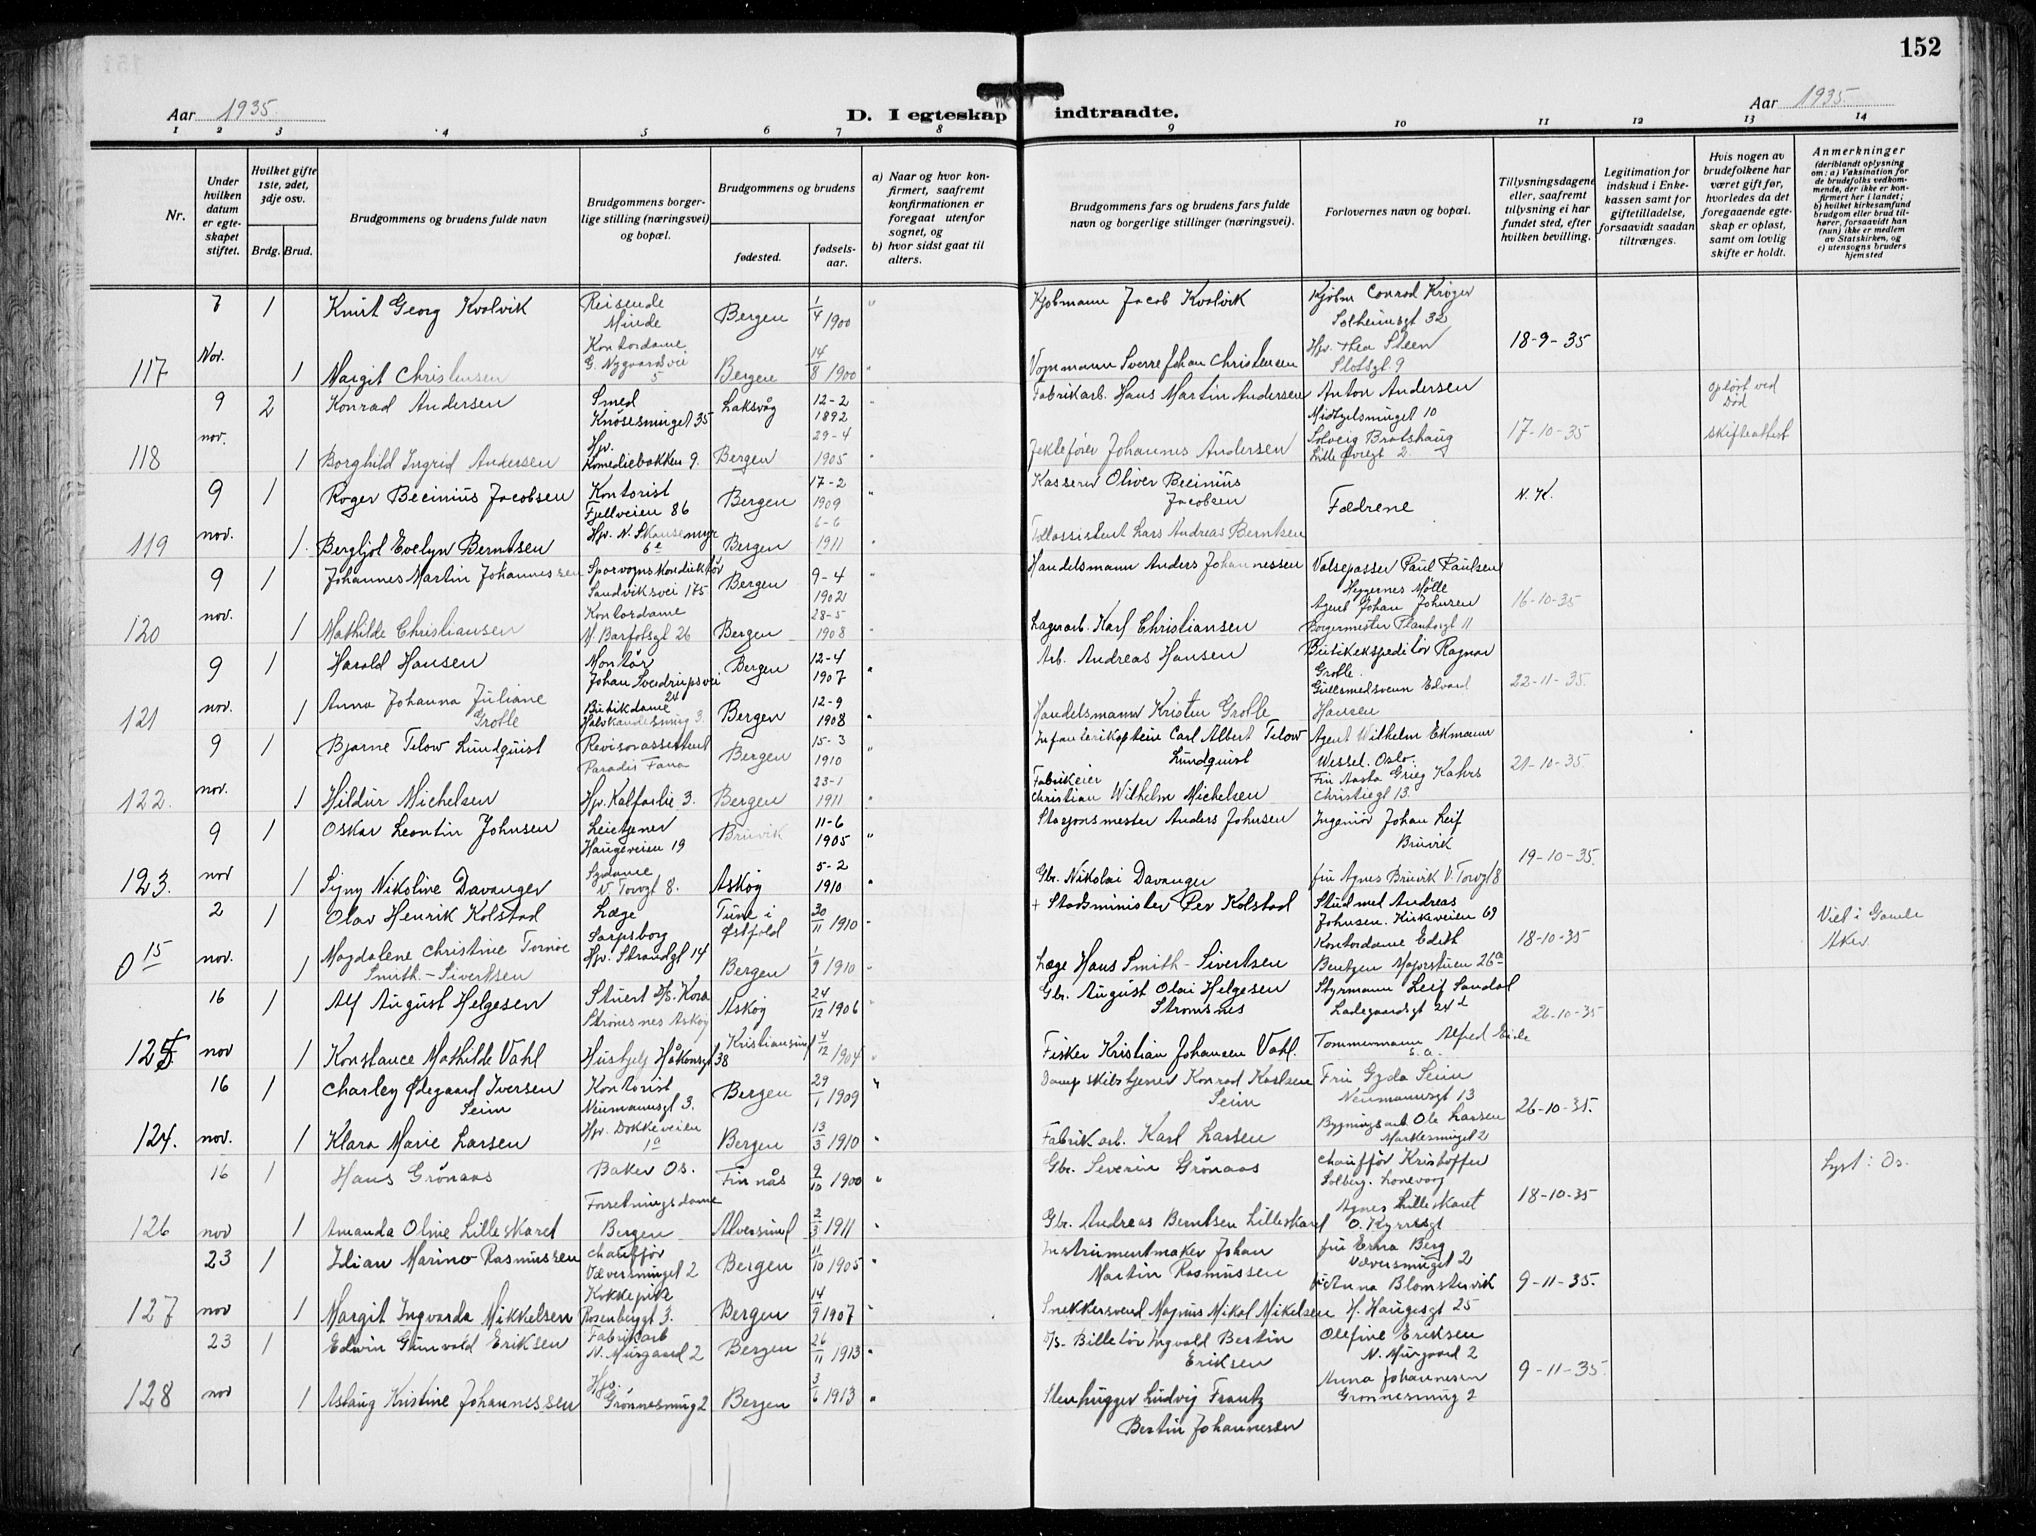 152
Aar 1935.
D. I egteskap indtraadte.
Aar 1935.
1 2 3 4 5 6 7 8 9 10 11 12 13 14
Nr.
Under hvilken datum er egteskapet stiftet.
Hvilket gifte 1ste, 2det, 3dje osv.
Brdg. Brud.
Brudgommens og brudens fulde navn
Brudgommens borgerlige stilling (næringsvei) og bopæl.
Brudgommens og brudens
fødested.
fødselsaar.
a) Naar og hvor konfirmert, saafremt konfirmationen er foregaat utenfor sognet, og
b) hvor sidst gaat til alters.
Brudgommens fars og brudens fars fulde navn og borgerlige stillinger (næringsvei).
Forlovernes navn og bopæl.
Tillysningsdagene eller, saafremt tillysning ei har fundet sted, efter hvilken bevilling.
Legitimation for indskud i Enkekassen samt for giftetilladelse, forsaavidt saadan tiltrænges.
Hvis nogen av brudefolkene har været gift før, hvorledes da det foregaaende egteskap er opløst, samt om lovlig skifte er holdt.
Anmerkninger (deriblandt oplysning om: a) Vaksination for de brudefolks vedkommende, der ikke er konfirmert her i landet; b) hvilket kirkesamfund brudgom eller brud tilhører, forsaavidt han (hun) ikke er medlem av Statskirken, og c) utensogns bruders hjemsted
7 1 Knut Georg Kvalvik Reisende Minde Bergen 1/4 1900 " Kjøbmann Jacob Kvalvik Kjøbm Conrad Krøger Solheimsgt 32
117 Nov. 1 Margit Christensen Kontordame G. Nygaardsvei 5 Bergen 14/8 1900 " Sverre Johan Christensen Hfr. Thea Steen Slotsgt. 9 18-9-35
9 2 Konrad Andersen Smed Knøsesmuget 35 Laksvåg 12-2 1892 " Fabrikarb. Hans Martin Andersen Anton Andersen Midtgelsmuget 10 opløst ved Død
118 nov. 1 Borghild Ingrid Andersen Hfr. Komediebakken 9. Bergen 29-4 1905 " Jektefører Johannes Andersen Solveig Bratshaug Lille Øvregt 2 17-10-35 skifteattest
9 1 Roger Becinius Jacobsen Kontorist Fjellveien 86 Bergen 17-2 1909 " Kasserer Oliver Becinius Jacobsen Fædrene N.K.
119 nov. 1. Bergljot Evelyn Berntsen Hfr. N. Skansemyr 6e Bergen 6-6 1911 " Tollassistent Lars Andreas Berntsen
9 1 Johannes Martin Johannessen Sporvognskonduktør Sandviksvei 175 Bergen 9-4 1902 " Handelsmann Anders Johannessen Valsepasser Paul Paulsen Heggernes Mølle
120 nov. 1 Mathilde Christiansen Kontordame M. Barfotsgt 26 Bergen 28-5 1908 " Lagerarb. Karl Christiansen Agent Johan Johnsen Borgermester Platousgt 11 16-10-35
9 1 Harald Hansen Montør Johan Sverdrupsvei 24 Bergen 12-4 1907 " Arb. Andreas Hansen Butikekspeditør Ragnar Grotle
121 nov. 1 Anna Johanna Juliane Grotle Butikdame Halvkandesmug 3. Bergen 12-9 1908 " Handelsmann Kristen Grotle Gullsmedsvenn Edvard Hansen 22-11-35.
9 1 Bjarne Telow Lundquist Revisorassistent Paradis Fana Bergen 15-3 1910 " Infanterikaptein Carl Albert Telow Lundquist Agent Wilhelm Ekmann Wessel. Oslo.
122. nov. 1 Hildur Michelsen Hfr. Kalfarlie 3. Bergen 23-1 1911 " Fabrikeier Christian Wilhelm Michelsen Fru Aasta Grieg Kahrs Christiegt 13. 21-10-35.
9 1 Oskar Leontin Johnsen Leietjener Haugeveien 19 Bruvik 11-6 1905 " Stasjonsmester Anders Johnsen Ingeniør Johan Leif Bruvik
123. nov 1 Signy Nikoline Davanger Sydame V. Torvgt 8. Askøy 5-2 1910 " Gbr. Nikolai Davanger fru Agnes Bruvik V. Torvgt 8 19-10-35.
2 1 Olav Henrik Kolstad Læge Sarpsborg Tune i Østfold 30/11 1910 " + Statsminister Per Kolstad Stud med Andreas Johnsen. Kirkeveien 69 Viet i Gamle Aker
0 15 nov. 1 Magdalene Christine Tornøe Smith-Sivertsen Hfr. Strandgt 14 Bergen 1/9 1910 " Læge Hans Smith-Sivertsen Kontordame Edith Bentzen Majorstuen 26a 18-10-35
16 1 Alf August Helgesen Stuert Strømsnes Askøy Askøy 24/12 1906 " Gbr. August Olai Helgesen Strømsnes Styrmann Leif Sandal Ladegaardsgt 24d
125 nov 1 Konstance Mathilde Vahl Hushjelp Håkonsgt 38 Kristiansund 4/12 1904 " Fisker Kristian Johansen Vahl. Tømmermann Alfred Eide s.a. 26-10-35
16 1 Charley Ødegaard Iversen Seim Kontorist Neumannsgt 3. Bergen 29/1 1909 " Dampskibstjener Konrad Karlsen Seim Fru Gyda Seim Neumannsgt 13
124. nov. 1 Klara Marie Larsen Hfr. Dokkeveien 1a Bergen 13/3 1910 " Fabrikarb. Karl Larsen Bygningsarb Ole Larsen Markesmuget 2 26-10-35.
16 1 Hans Grønaas Baker Os. Finnås 9/10 1900 " Gbr. Severin Grønaas Chauffør Kristoffer Solberg. Lonevaag Lyst: Os.
126 nov 1 Amanda Oline Lilleskaret Forretningsdame Bergen Alversund 2/3 1911 " Gbr. Andreas Berntsen Lilleskaret Agnes Lilleskaret O. Kyrresgt 18-10-35
23 1 Marino Rasmussen Chauffør Væversmuget 2 Bergen 11/10 1905 " Instrumentmaker Johan Martin Rasmussen fru Erna Berg Væversmuget 2
127 nov 1 Margit Ingvarda Mikkelsen Kokkepike Rosenberggt 3. Bergen 14/9 1907 " Snekkersvend Magnus Mikal Mikelsen Anna Blomstervik H. Haugesgt 25 9-11-35.
23 1 Edvin Gunvald Eriksen Fabrikarb N. Murgaard 2 Bergen 26/11 1913 " Billetør Ingvald Bertin Eriksen Olefine Eriksen N. Murgaard 2
128 nov 1 Aslaug Kristine Johannessen Hfr. Grønnesmug 2 Bergen 3/6 1913 " Stenhugger Ludvig Frantz Bertin Johannesen Anna Johannesen Grønnesmug 2 9-11-35.